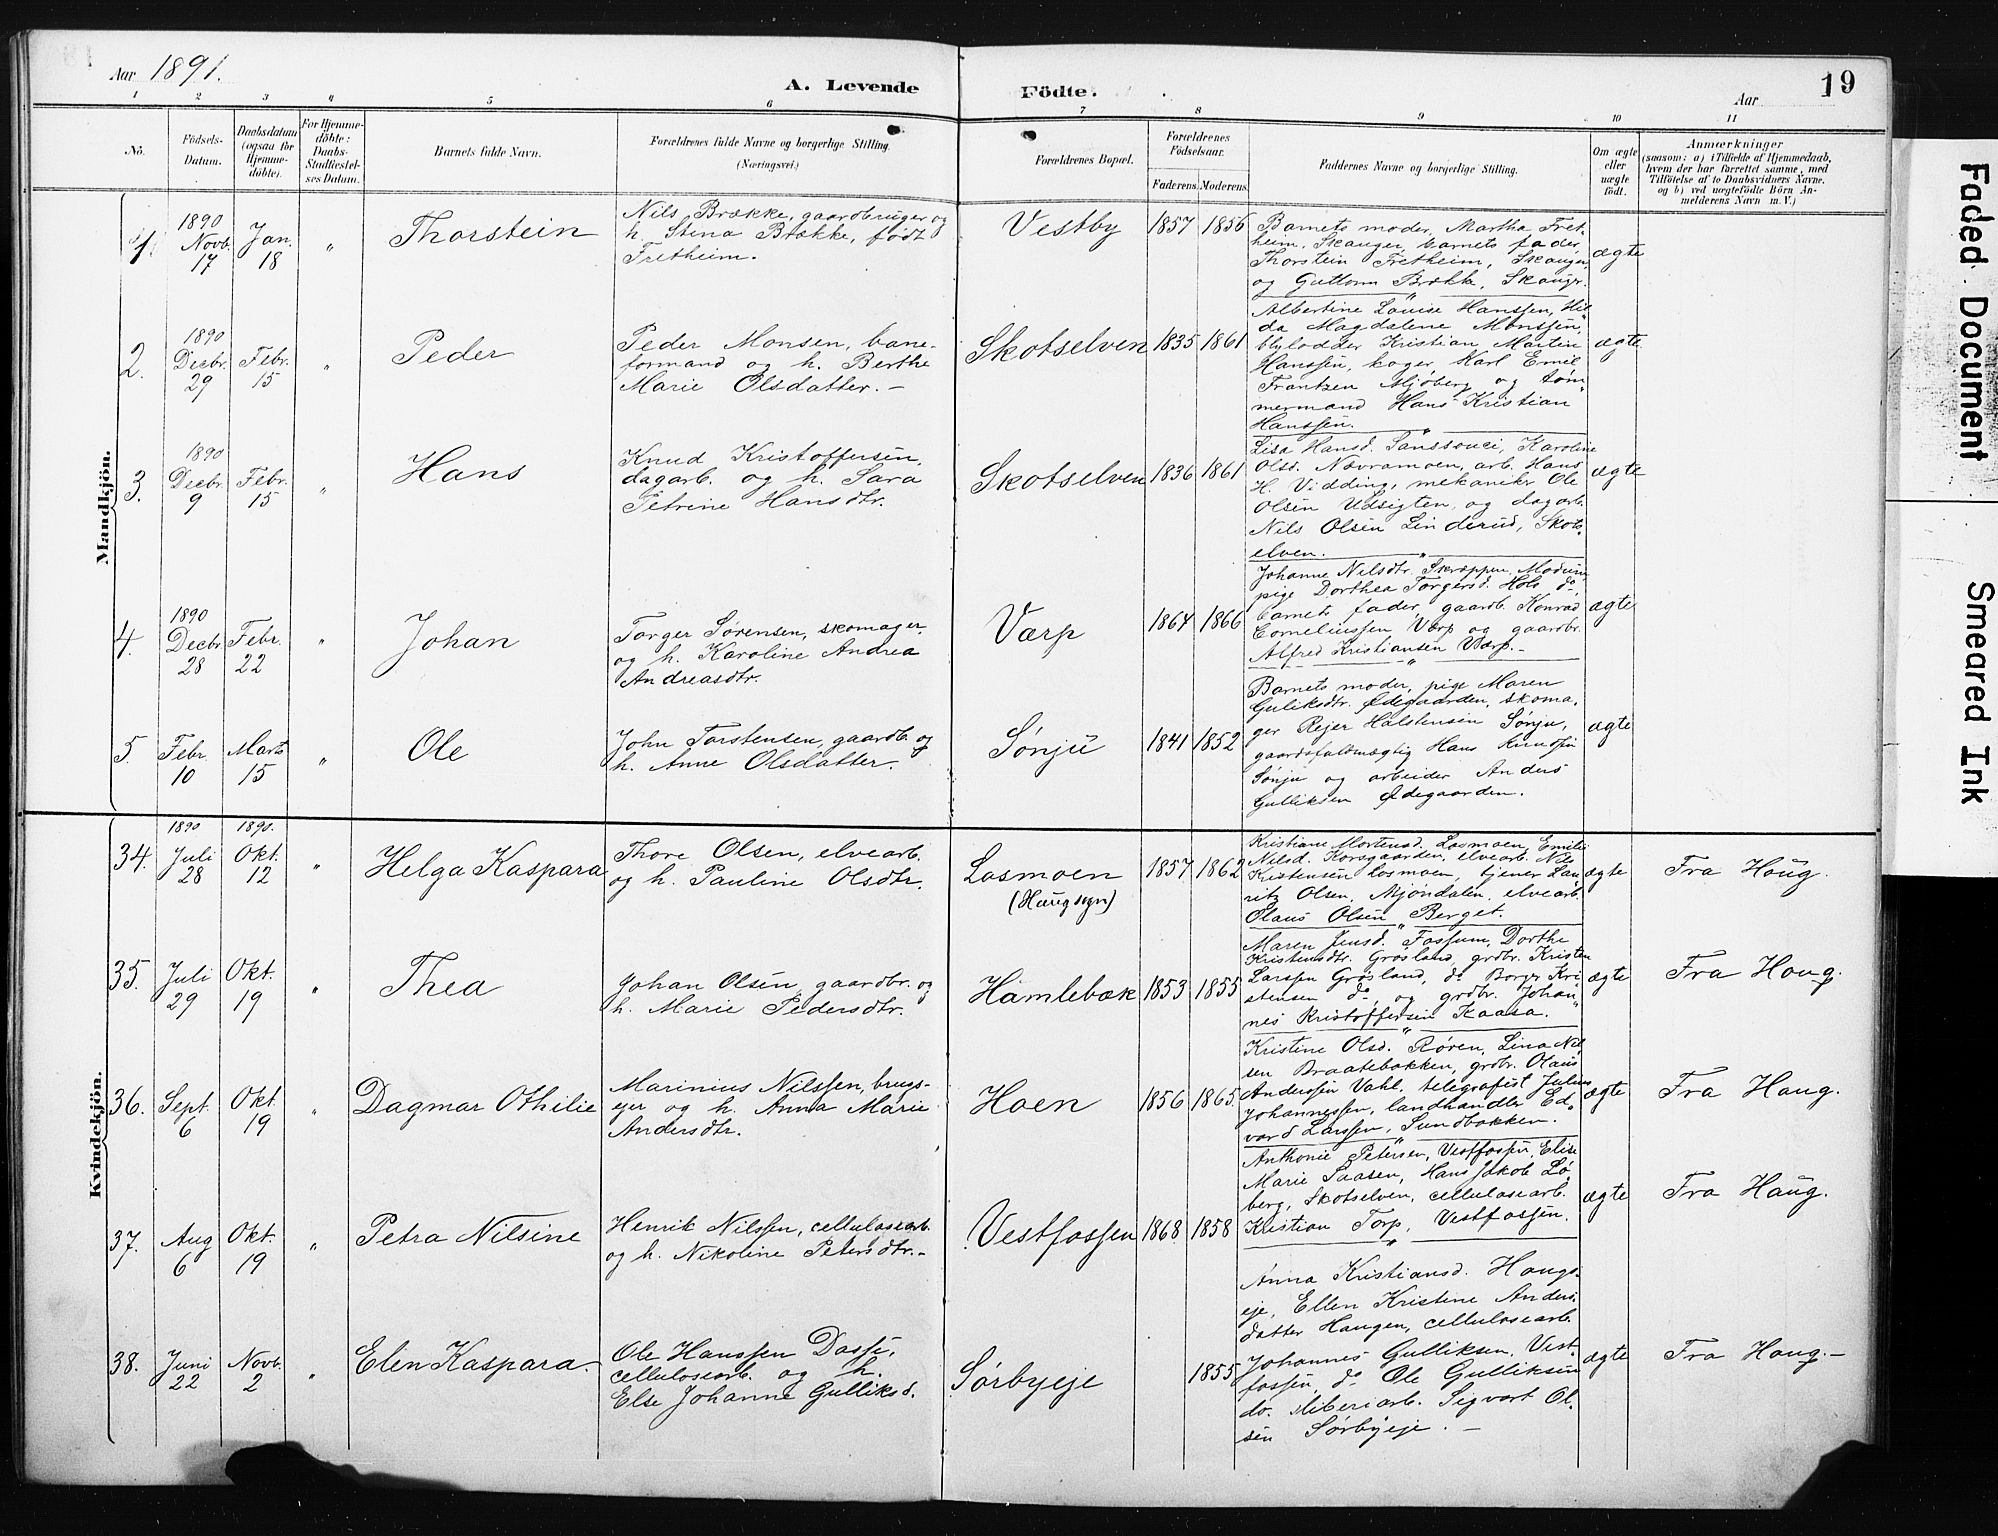 Aar 1891.
A. Levende
Födte.
Aar
19
1 2 3 4 5 6 7 8 9 10 11
No.
Födsels-Datum.
Daabsdatum (ogsaa for Hjemmedöbte).
For Hjemmedöbte: Daabs-Stadfæstelses Datum.
Barnets fulde Navn.
Forældrenes fulde Navne og borgerlige Stilling. (Næringsvei.)
Forældrenes Bopæl.
Forældrenes Födselsaar.
Faderens. Moderens.
Faddernes Navne og borgerlige Stilling.
Om ægte eller uægte födt.
Anmærkninger
(saasom: a) i Tilfælde af Hjemmedaab, hvem der har forrettet samme, med Tilföielse af to Daabsvidners Navne, og b) ved uægtefödte Börn Anmelderens Navn m. V.)
Mandkjön.
1. 1890 Novb. 17 Jan. 18 " Thorstein
Nils Brække, gaardbruger og
h. Stina Brække, født
Fretheim.
Vestby 1857 1856
Barnets moder, Martha Fret-
heim, Skauger, barnets fader,
Thorstein Fretheim, Skauger,
og Guttorm Brække, Skaugr.
ægte
2. 1890 Decbr. 29 Febr. 15 " Peder
Peder Monsen, bane-
formand og h. Berthe
Marie Olsdatter. -
Skotselven 1835 1861
Albertine Louise Hanssen, Hil-
da Magdalene Monssen,
blylodder Kristian Martin
Hanssen, koger Karl Emil
Frantzen Mjöberg og töm-
mermand Hans Kristian
Hanssen.
ægte
3. 1890 Decbr. 9 Febr. 15 " Hans
Knud Kristoffersen,
dagarb. og h. Sara
Petrine Hansdtr.
Skotselven 1836 1861
Lisa Hansd. Sanssouci, Karoline
Olsd. Nævramoen, arb. Hans
H. Vidding, mekaniker Ole
Olsen Udsigten, og dagarb.
Nils Olsen Linderud, Skots-
elven.
ægte
4. 1890 Decbr. 28 Febr. 22 " Johan
Torger Sørensen, skomager,
og h. Karoline Andrea
Andreasdtr.
Værp 1864 1866
Johanne Nilsdtr. Skrappen, Modum,
pige Dorthea Torgersd. Hols do.
barnets fader, gaardb. Konrad
Corneliussen Værp og gaardbr.
Alfred Kristiansen Værp.-
ægte
5. Febr. 10 Marts 15 " Ole
John Torstensen, gaardb. og
h. Anne Olsdatter.
Sønju 1841 1852
Barnets moder, pige Maren
Guliksdtr. Ødegaarden, skoma-
ger Rejer Halstensen Sønju,
gaardsfuldmægtig Hans Knudsen
Sønju og arbeider Anders
Gulliksen Ødegaarden.
ægte
Kvindekjön.
34. 1890 Juli 28 1890. Okt. 12 " Helga Kaspara
Thore Olsen, elvearb.
og h. Pauline Olsdtr.
Losmoen
(Haug sogn)
1857 1862
Kristiane Mortensd. Losmoen, Emilie
Nilsd. Korsgaarden, elvearb. Nils
Kristensen Losmoen, tjener Lau-
ritz Olsen, Mjøndalen, elvearb.
Olaus Olsen Berget.
ægte Fra Haug.
35. Juli 29 Okt. 19 " Thea
Johan Olsen, gaardbr. og
h. Marie Pedersdtr.
Hamlebæk 1853 1855
Maren Jensd. Fossum, Dorthe
Kristensdtr. Grøsland, grdbr. Kristen
Larsen Grøsland, do. Borger Kri-
stensen do, og grdbr. Johan-
nes Kristoffersen Kaasa.
ægte Fra Haug.
36. Sept. 6 Okt. 19 " Dagmar Othilie
Marinius Nilssen, brugs-
ejer og h. Anna Marie
Andersdtr.
Hoen 1856 1865.
Kristine Olsd. Røren, Lina Nil-
sen Braatebakken, grdbr. Olaus
Anderssen Vahl, telegrafist Julius
Johannessen, landhandler Ed-
vard Larssen, Sundbakken.
ægte Fra Haug.
37. Aug 6 Okt. 19 " Petra Nilsine
Henrik Nilssen, cellulosearb.
og h. Nikoline Petersdtr.-
Vestfossen 1868 1858
Anthonie Petersen, Vestfossen, Elise
Marie Saasen, Hans Jakob Lø-
berg, Skotselven, cellulosearb.
Kristian Torp, Vestfossen.
ægte Fra Haug.
38. Juni 22 Novb. 2 " Elen Kaspara.
Ole Hanssen
cellulosearb. og h.
Else Johanne Gulliksd.
Sørbyeje 1855
Anna Kristiansd. Haugs-
eje, Ellen Kristine Anders-
datter Haugen, cellulosearb.
Johannes Gulliksen, Vest-
fossen, do Ole Gulliksen
do. sliberiarb. Sigvart Ol-
sen Sørbyeje. -
ægte Fra Haug.-
Faded Document
Smeared Ink